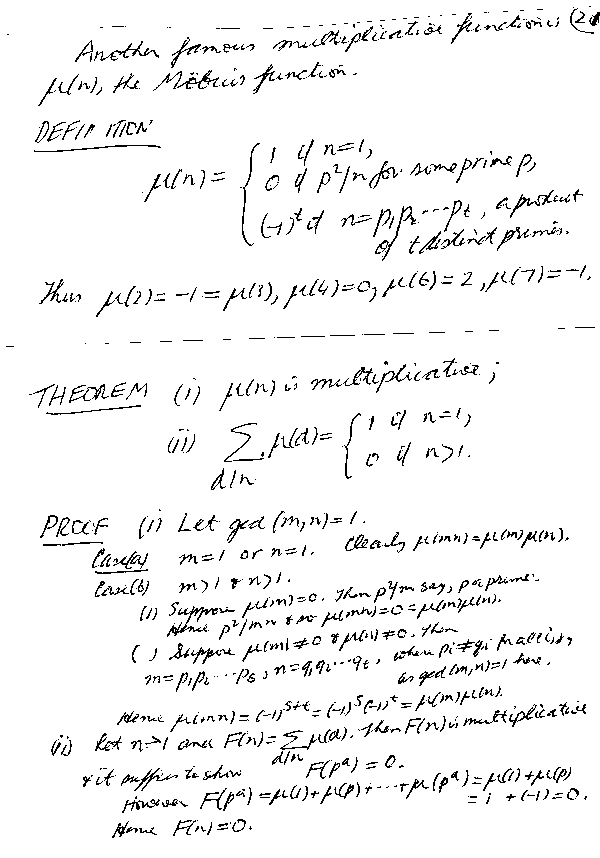 Another famous multiplicative function is (21
μ(n), the Möbius function.
DEFINITION
μ(n) = { 1 if n=1,
0 if p²/n for some prime p,
(-1)^t if n=p₁p₂---p_t, a product
of t distinct primes.
Thus μ(2)= -1 = μ(3), μ(4)=0, μ(6)=2, μ(7)=-1.
THEOREM (i) μ(n) is multiplicative;
(ii) Σ_{d|n} μ(d) = { 1 if n=1,
0 if n>1.
PROOF (i) Let gcd(m,n)=1.
Case(a) m=1 or n=1. Clearly μ(mn)=μ(m)μ(n).
Case(b) m>1 & n>1.
(1) Suppose μ(m)=0. Then p²/m say, p a prime.
Hence p²/mn & so μ(mn)=0=μ(m)μ(n).
( ) Suppose μ(m)≠0 & μ(n)≠0. Then
m=p₁p₂---p_s, n=q₁q₂---q_t, where p_i≠q_j for all i, j,
as gcd(m,n)=1 here.
Hence μ(mn)=(-1)^{s+t}=(-1)^s(-1)^t=μ(m)μ(n).
(ii) Let n>1 and F(n)=Σ_{d|n} μ(d). Then F(n) is multiplicative
& it suffices to show F(p^a)=0.
However F(p^a)=μ(1)+μ(p)+---+μ(p^a)=μ(1)+μ(p)
= 1 +(-1)=0.
Hence F(n)=0.